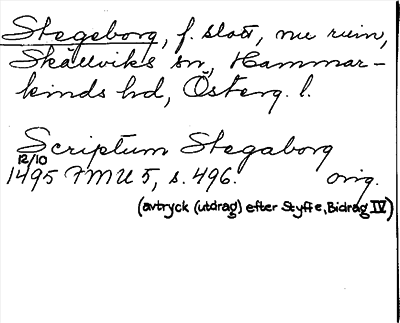 Stegeborg, f. slott, nu ruin,
Skällviks sn, Hammar-
kinds hd, Österg. l.
Scriptum Stegaborg
12/10
1495 FMU 5, s. 496. orig.
(avtryck (utdrag) efter Styffe, Bidrag IV)